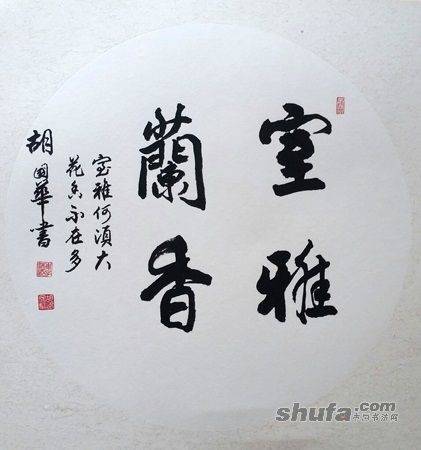 室雅
蘭香
室雅何須大
花香不在多
胡國華書
shufa.com